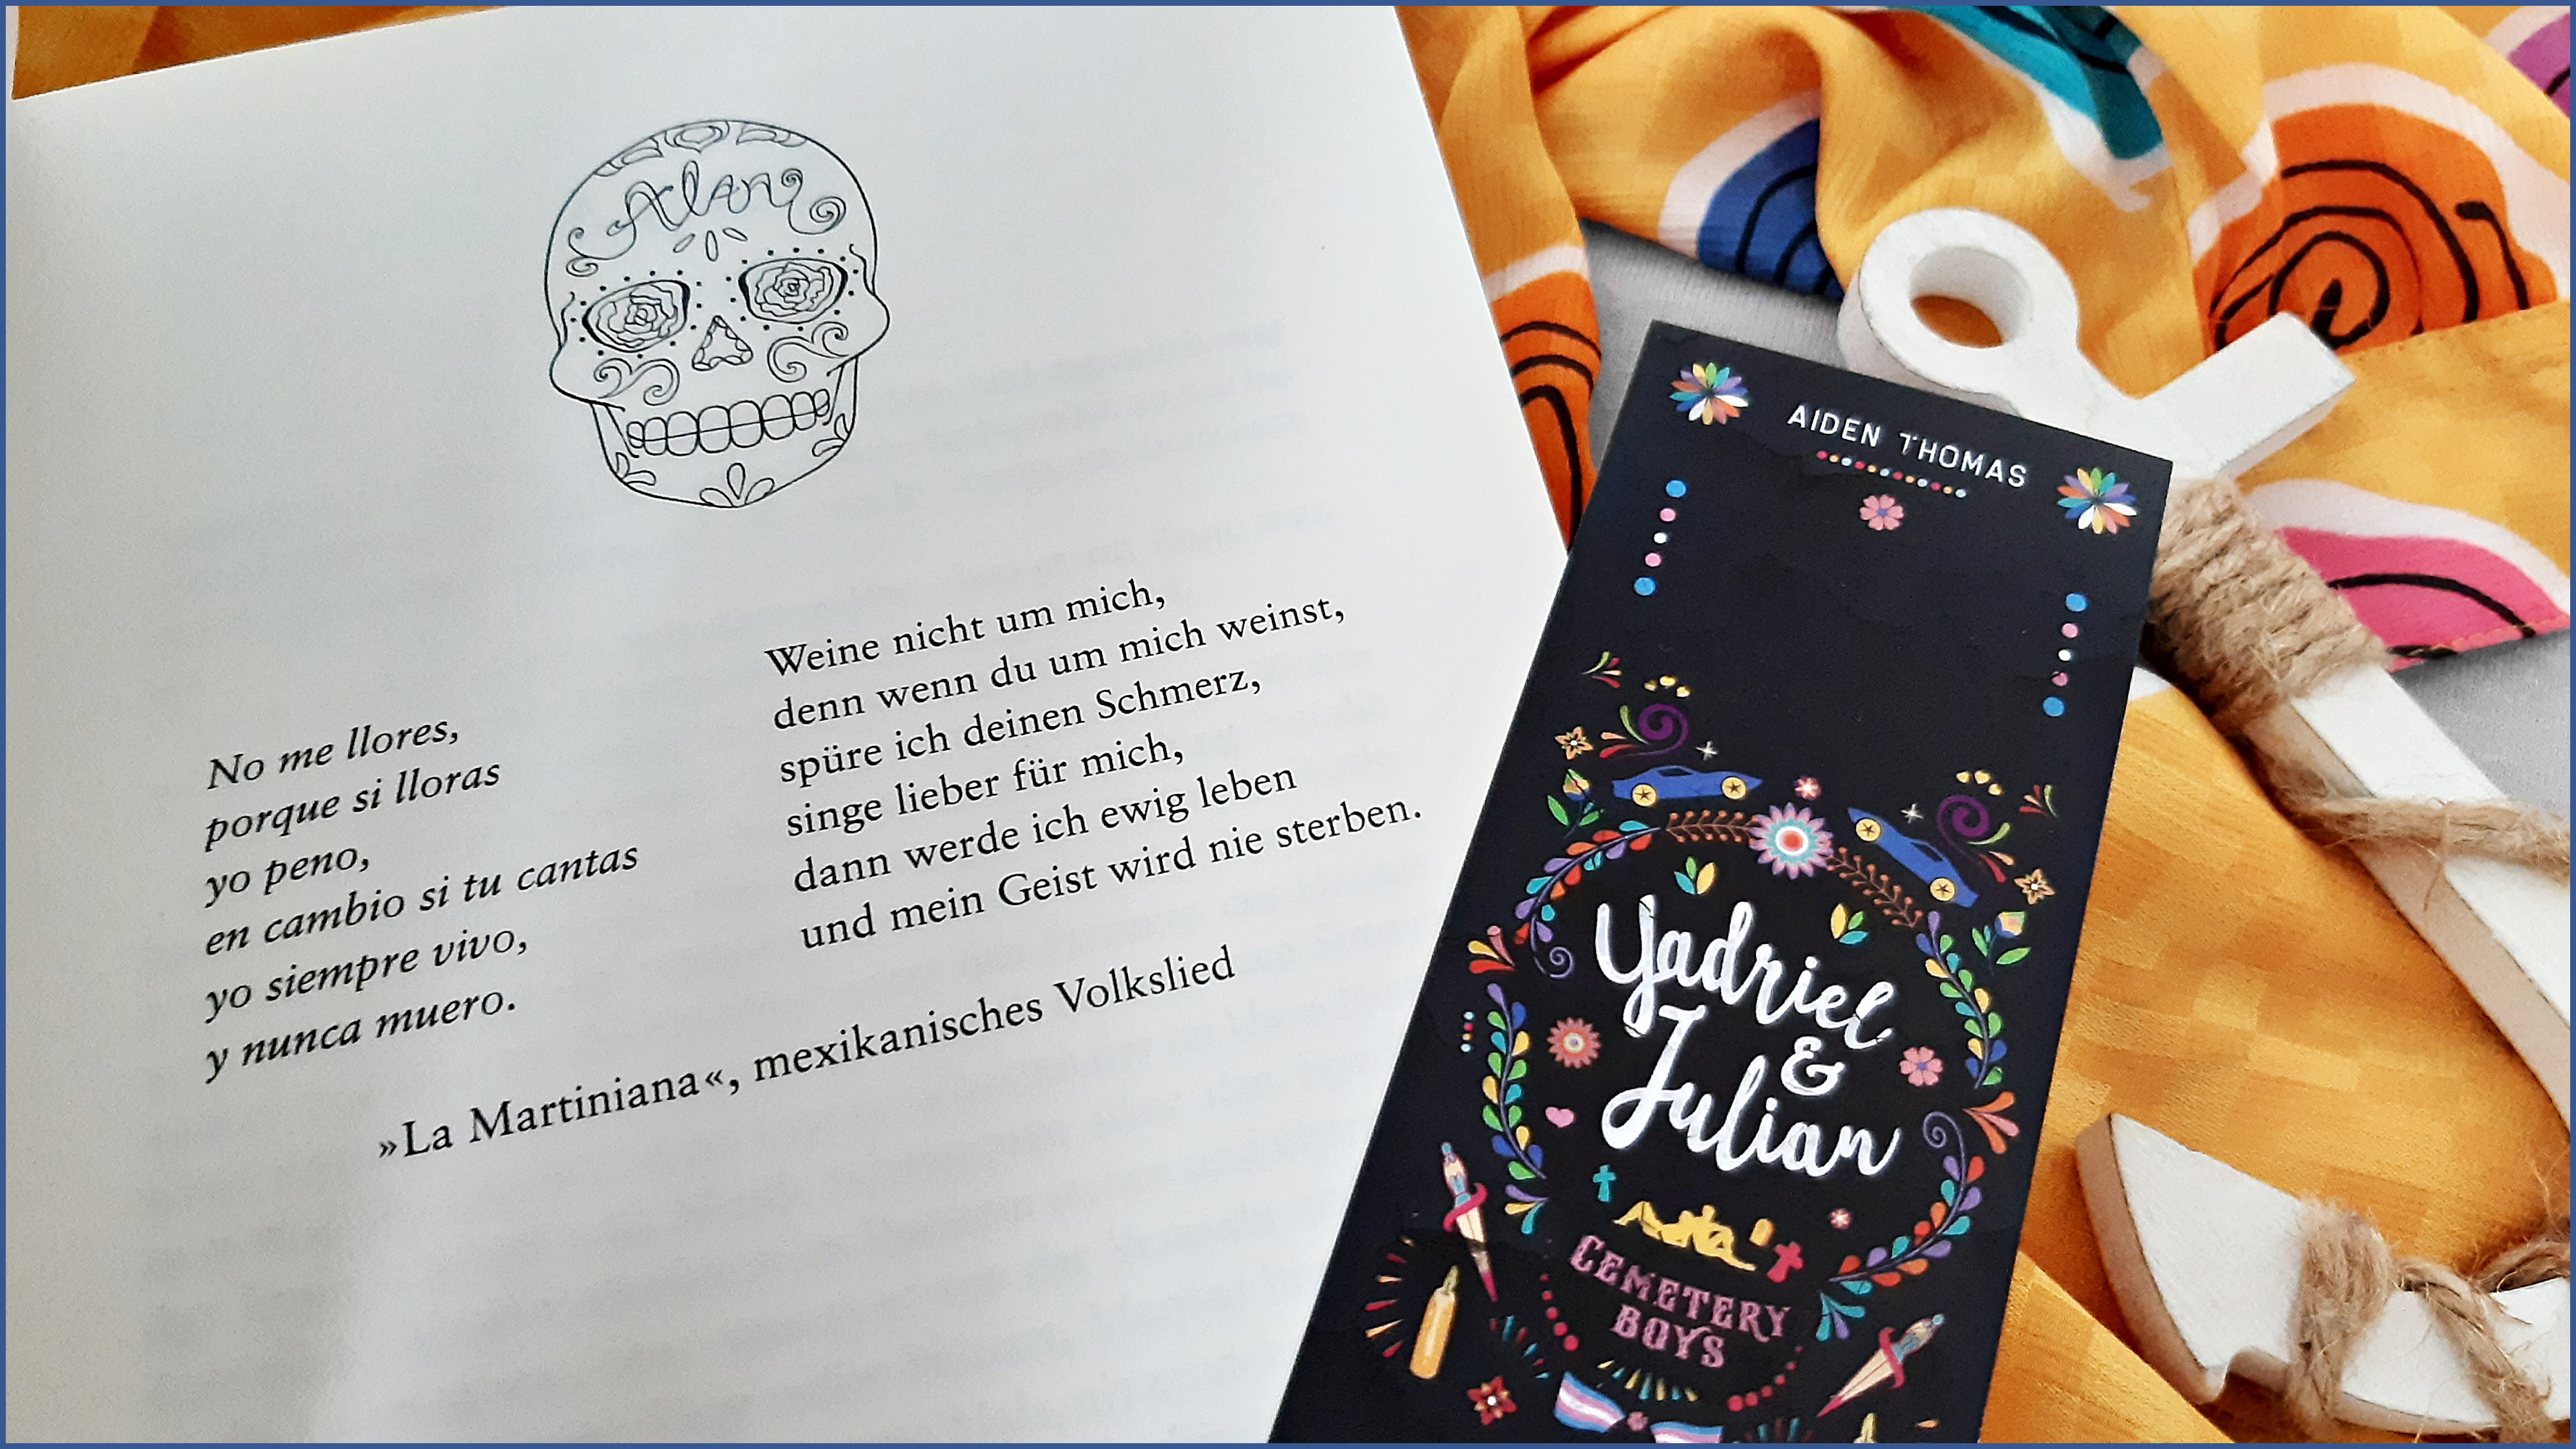 Alan
No me llores,
porque si lloras
yo peno,
en cambio si tu cantas
yo siempre vivo,
y nunca muero.
Weine nicht um mich,
denn wenn du um mich weinst,
spüre ich deinen Schmerz,
singe lieber für mich,
dann werde ich ewig leben
und mein Geist wird nie sterben.
»La Martiniana«, mexikanisches Volkslied
AIDEN THOMAS
Yadriel
&
Julian
CEMETERY
BOYS